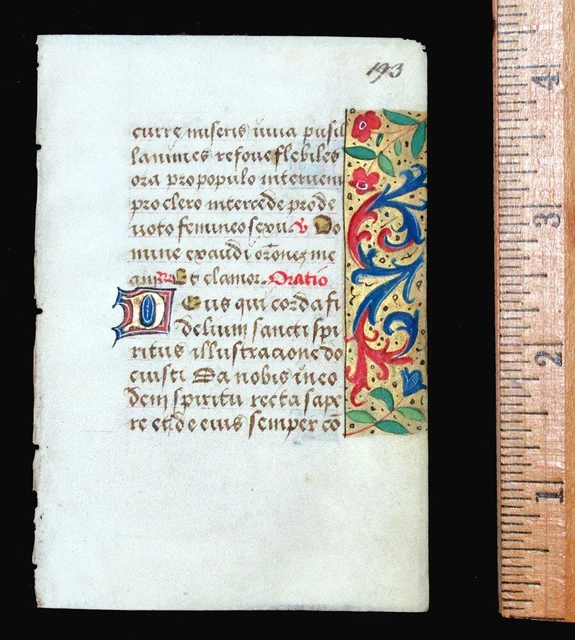 193
curre miseris iuua pusil
lanimes refoue flebiles
ora pro populo interueni
pro clero intercede pro de
uoto femineo sexu. ꝟ Do
mine exaudi or̄onez me
am ꝶ Et clamor. Oratio
Deus qui corda fi
delium sancti spi
ritus illustracione do
cuisti Da nobis in eo
dem spiritu recta sape
re et de eius semper cō
4
3
2
1